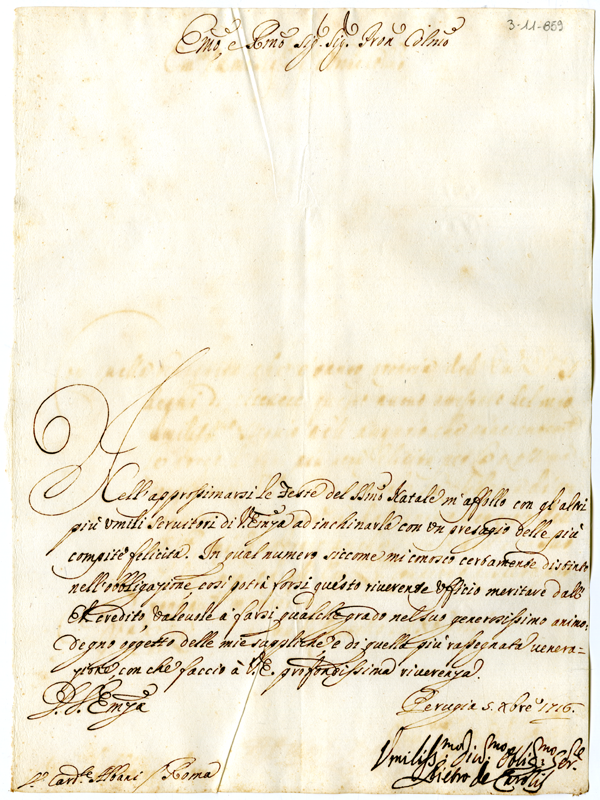 3-11-869
Emo, e Rmo Sig. Sig. Pron Colmo
Nell'approssimarsi le Feste del SSmo Natale m'affollo con gl'altri
più umili servitori di V. Emza ad inchinarle con un presagio delle più
compite felicità. In qual numero siccome mi conosco certamente distinto
nell'obbligazione, così potrà forsi questo riverente Ufficio meritare dall'
credito valevole à farsi qualche grado nel suo generosissimo animo,
degno oggetto delle mie suppliche e di quella più rassegnata venera-
zione, con che faccio à V. E. profondissima riverenza.
D. V. Emza
Perugia 5. Xbre 1716.
Umiliss.mo Div.mo Oblig.mo Ser.re
Pietro de Carolis
Sr. Card.le Albani / Roma